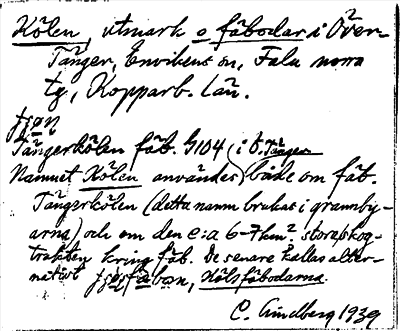 Kölen, utmark o fäbodar i Över-
Tänger, Envikens sn, Falu norra
tg, Kopparb. län.
Tängerkölen fäb. G104 (i Ö. Tänger
Namnet Kölen användes både om fäb.
Tängerkölen (detta namn brukas i grannby-
arna) och om den c:a 6-7 km². stora skog-
trakten kring fäb. De senare kallas alter-
nativt, Kölsfäbodarna.
C. Lindberg 1939